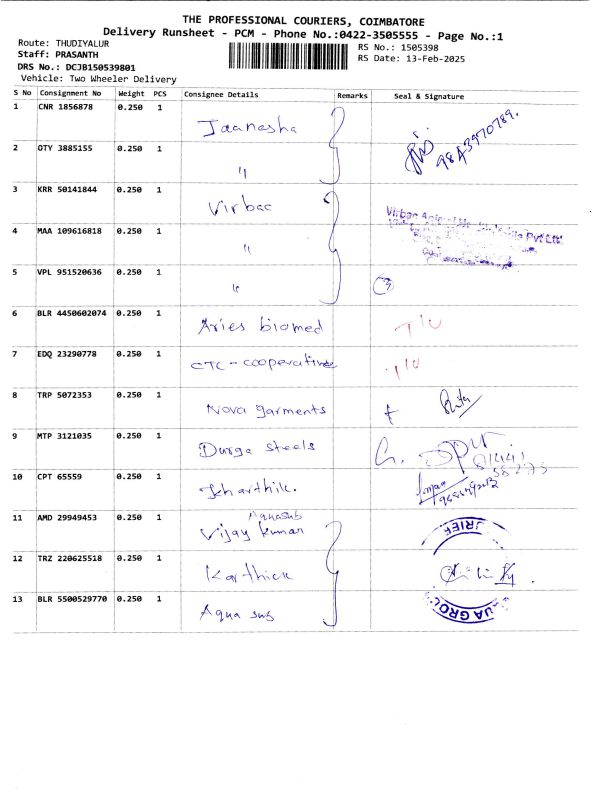 THE PROFESSIONAL COURIERS, COIMBATORE
Delivery Runsheet - PCM - Phone No.:0422-3505555 - Page No.:1
Route: THUDIYALUR
Staff: PRASANTH
DRS No.: DCJB150539801
Vehicle: Two Wheeler Delivery
RS No.: 1505398
RS Date: 13-Feb-2025
S No Consignment No Weight PCS Consignee Details Remarks Seal & Signature
1 CNR 1856878 0.250 1 Jaanesha
2 OTY 3885155 0.250 1 "
3 KRR 50141844 0.250 1 Virbac
4 MAA 109616818 0.250 1 "
Pvt Ltd.
5 VPL 951520636 0.250 1 "
6 BLR 4450602074 0.250 1 Aries biomed
7 EDQ 23290778 0.250 1 CTC - cooperative
8 TRP 5072353 0.250 1 Nova garments
9 MTP 3121035 0.250 1 Durga steels
10 CPT 65559 0.250 1 Kharthik.
11 AMD 29949453 0.250 1 Vijay kumar
12 TRZ 220625518 0.250 1 Karthick
13 BLR 5500529770 0.250 1 Aqua sub